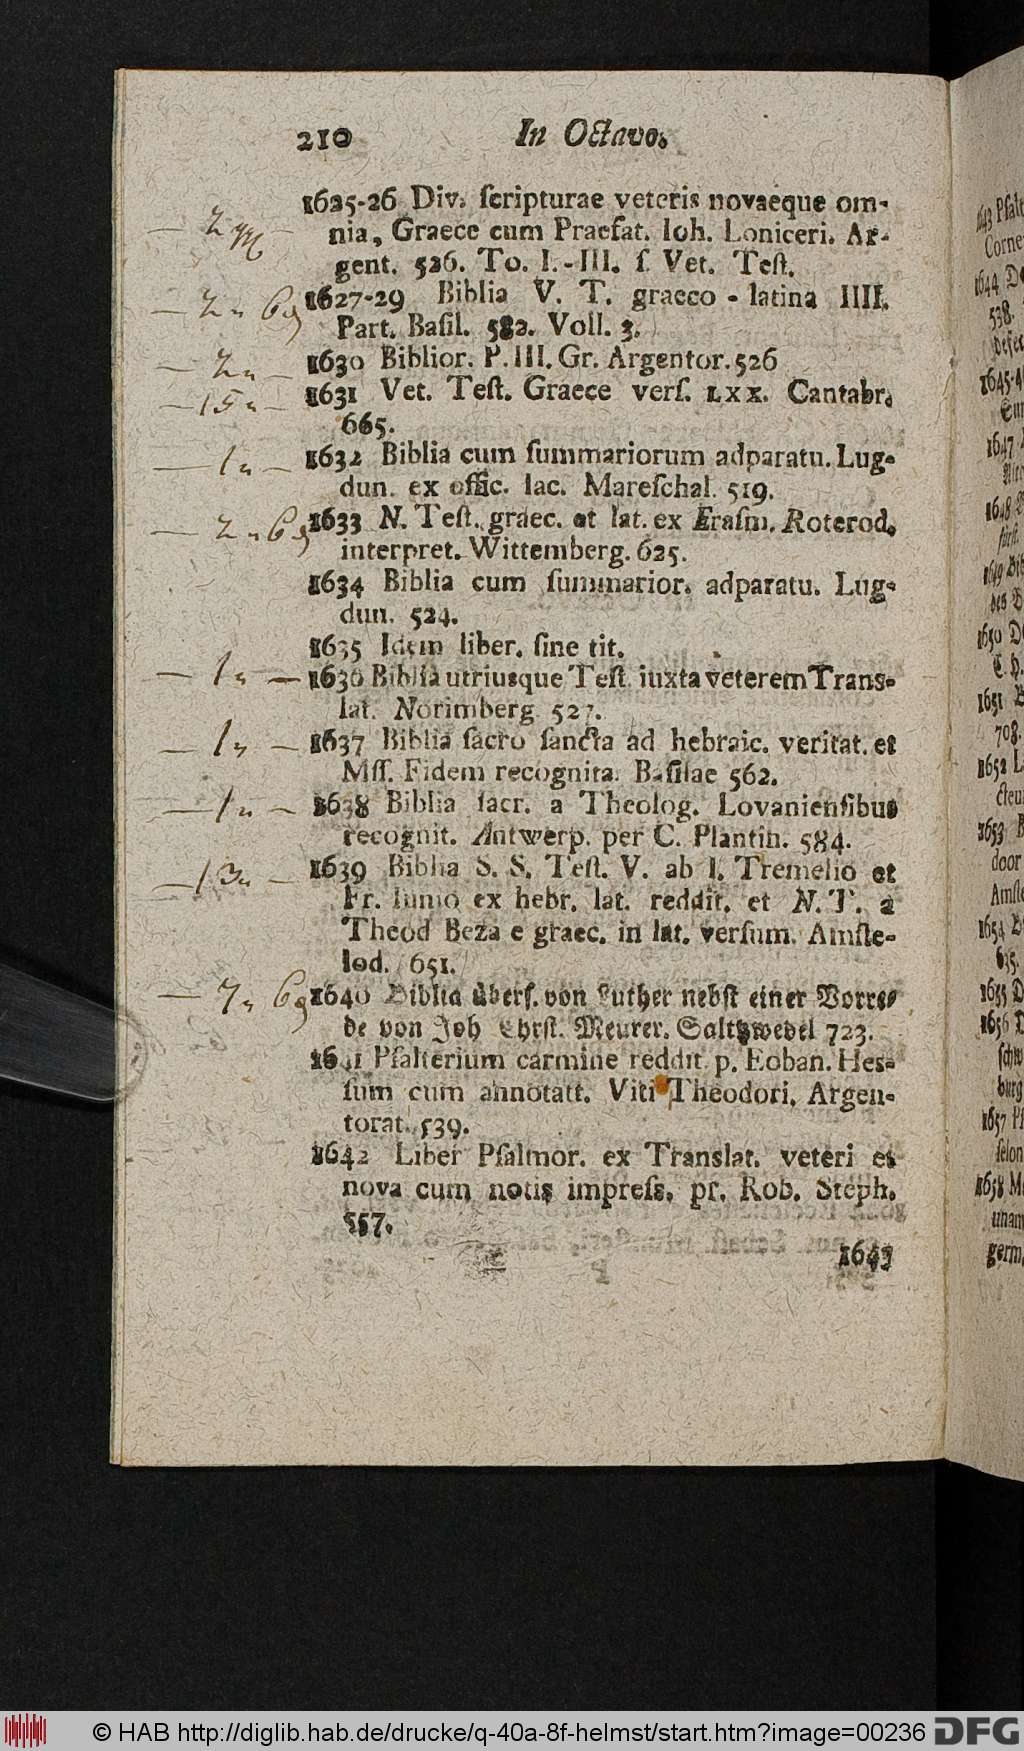 210 In Octavo.
1625-26 Div. ſcripturae veteris novaeque om-
nia, Graece cum Praefat. Ioh. Loniceri. Ar-
gent. 526. To. I.-III. ſ. Vet. Teſt.
1627-29 Biblia V. T. graeco-latina IIII.
Part. Baſil. 582. Voll. 3.
1630 Biblior. P. III. Gr. Argentor. 526
1631 Vet. Teſt. Graece verſ. LXX. Cantabr.
665.
1632 Biblia cum ſummariorum adparatu. Lug-
dun. ex offic. Iac. Mareſchal. 519.
1633 N. Teſt. graec. et lat. ex Eraſm. Roterod.
interpret. Wittemberg. 625.
1634 Biblia cum ſummarior. adparatu. Lug-
dun. 524.
1635 Idem liber. ſine tit.
1636 Biblia utriusque Teſt. iuxta veterem Trans-
lat. Norimberg 527.
1637 Biblia ſacro ſancta ad hebraic. veritat. et
Mſſ. Fidem recognita. Baſilae 562.
1638 Biblia ſacr. a Theolog. Lovanienſibus
recognit. Antwerp. per C. Plantin. 584.
1639 Biblia S. S. Teſt. V. ab I. Tremelio et
Fr. Iunio ex hebr. lat. reddit. et N. T. a
Theod Beza e graec. in lat. verſum. Amſte-
lod. 651.
1640 Biblia überſ. von Luther nebſt einer Vorre-
de von Joh Chrſt. Meurer. Saltzwedel 723.
1641 Pſalterium carmine reddit. p. Eoban. Hes-
ſum cum annotatt. Viti Theodori. Argen-
torat. 539.
1642 Liber Pſalmor. ex Translat. veteri et
nova cum notis impreſs. pr. Rob. Steph.
557.
1643
— 2 —
— 2 6
— 2 —
— 15 —
— 1 —
— 2 6
— 1 —
— 1 —
— 1 —
— 13 —
— 7 6
1644
538.
1645-4
1647
1650
1651
708.
1652
1653
door
1654
1655
1656
1657
1658
germ.
© HAB http://diglib.hab.de/drucke/q-40a-8f-helmst/start.htm?image=00236
DFG